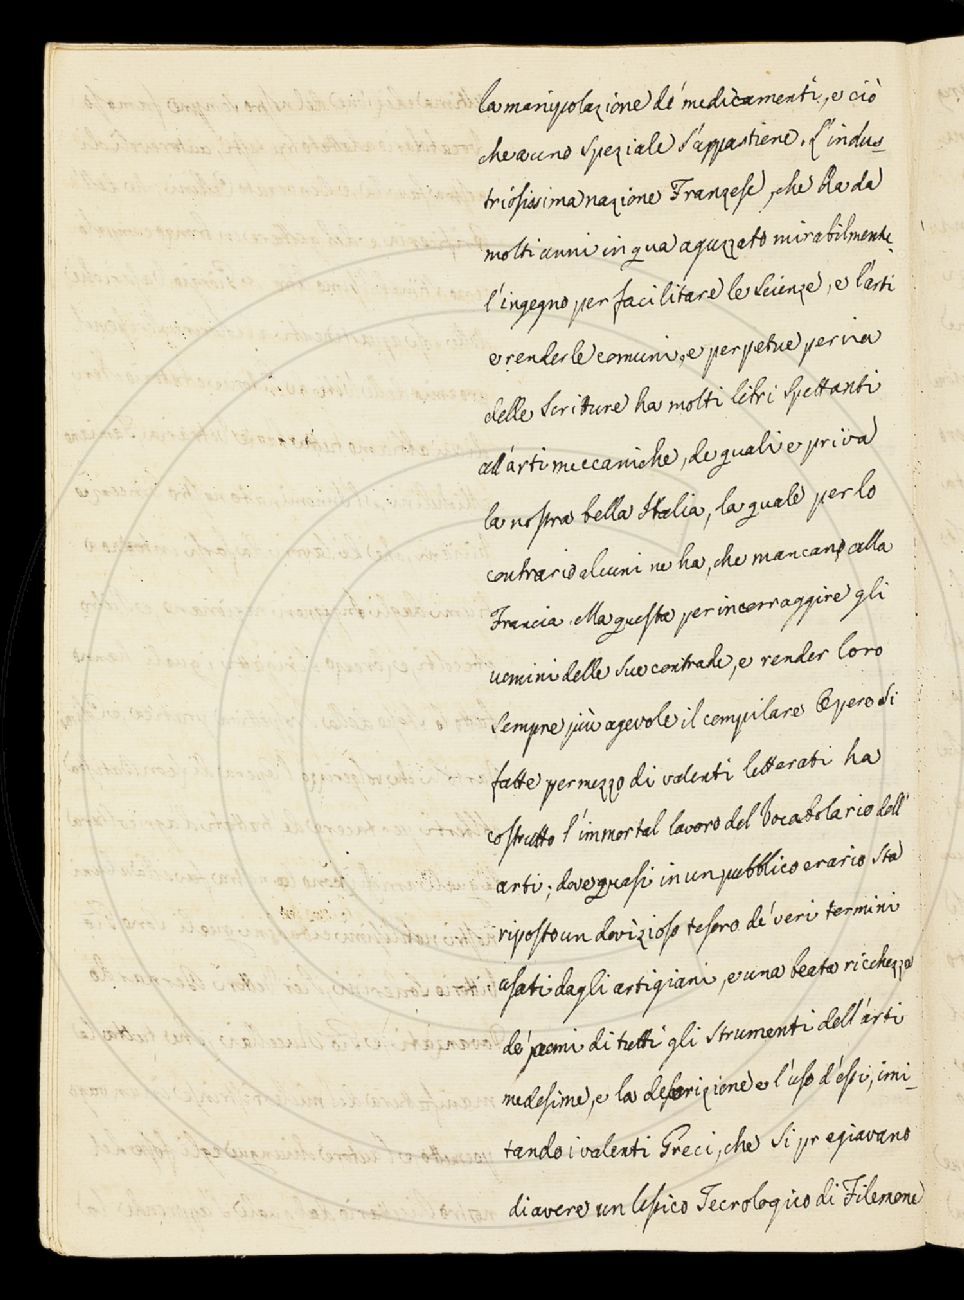 la manipolazione de' medicamenti, e ciò
che a uno Speziale s'appartiene. L'indus-
triosissima nazione Franzese, che ha da
molti anni in qua aguzzato mirabilmente
l'ingegno per facilitare le Scienze, e l'arti
e renderle comuni, e perpetue per via
delle Scritture ha molti libri Spettanti
all'arti meccaniche, de quali e priva
la nostra bella Italia, la quale per lo
contrario alcuni ne ha, che mancano alla
Francia. Ma questa per incorraggire gli
uomini delle Sue contrade, e render loro
Sempre più agevole il compilare Opere sì
fatte per mezzo di valenti letterati ha
costrutto l'immortal lavoro del Vocabolario dell'
arti; dove quasi in un pubblico erario Sta
riposto un dovizioso tesoro de' veri termini
usati dagli artigiani, e una beata ricchezza
de' nomi di tutti gli Strumenti dell'arti
medesime, e la descrizione e l'uso d'essi, imi-
tando i valenti Greci, che Si pregiavano
di avere un lessico Tecrologico di Filemone